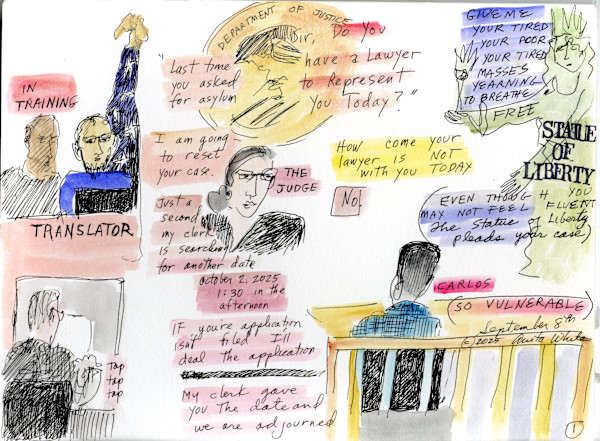 IN
TRAINING
TRANSLATOR
DEPARTMENT OF JUSTICE
"Last time
you asked
for asylum
Sir, Do You
have a Lawyer
to Represent
You Today?"
GIVE ME
YOUR TIRED
YOUR POOR
YOUR TIRED
MASSES
YEARNING
TO BREATHE
FREE
STATUE
OF
LIBERTY
I am going
to reset
your case.
THE
JUDGE
How come your
lawyer is NOT
with you TODAY
No.
Just a
second
my clerk
is searching
for another date
October 2, 2025
1:30 in the
afternoon
IF you're application
isn't filed I'll
deal the application
My clerk gave
you the date and
we are adjourned
(EVEN THOUGH YOU
MAY NOT FEEL FLUENT
the Statue of Liberty
pleads your case)
CARLOS
(SO VULNERABLE)
September 8th
©2025 Anita White
Tap
tap
tap
1